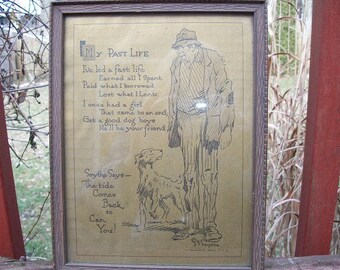 My Past Life
I've led a fast life
Earned all I Spent
Paid what I borrowed
Lost what I Lent
I once had a girl
That came to an end
Get a good dog boys
He'll be your friend
Smythe Says—
The tide
Comes
Back
so
Can
You!